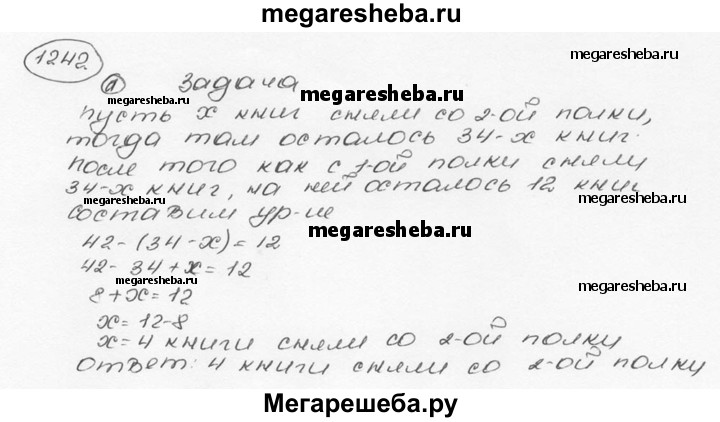 megaresheba.ru
1242
megaresheba.ru
1) Задача
megaresheba.ru
megaresheba.ru
пусть x книг сняли со 2-ой полки,
тогда там осталось 34-x книг.
после того как с 1-ой полки сняли
34-x книг, на ней осталось 12 книг
megaresheba.ru
megaresheba.ru
составим ур-ие
megaresheba.ru
42-(34-x)=12
42-34+x=12
megaresheba.ru
megaresheba.ru
8+x=12
x=12-8
megaresheba.ru
x=4 книги сняли со 2-ой полки
ответ: 4 книги сняли со 2-ой полки
Мегарешеба.ру